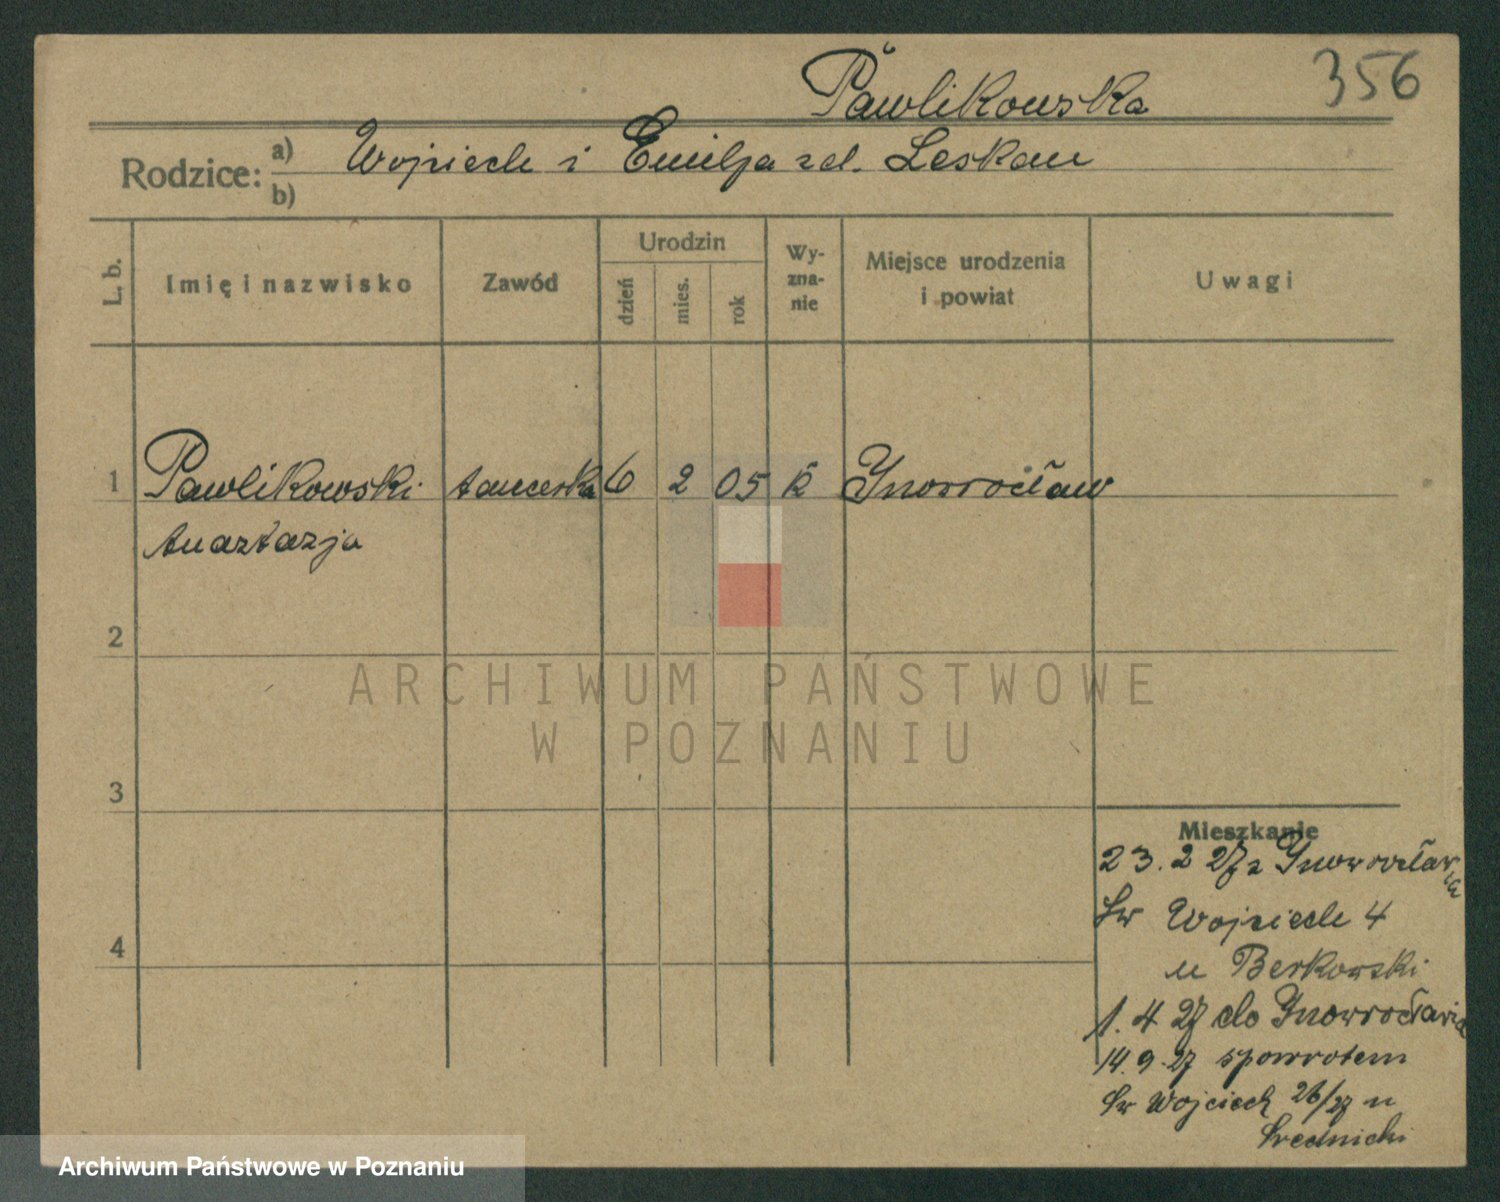 356
Pawlikowska
Rodzice: a) Wojciech i Emilja zd. Leskau
b)
L. b. Imię i nazwisko Zawód Urodzin dzień mies. rok Wy-zna-nie Miejsce urodzenia i powiat Uwagi
1 Pawlikowski tancerka 6 2 05 k Inowrocław
Anastazja
2
ARCHIWUM PAŃSTWOWE
W POZNANIU
3
Mieszkanie
23. 2 27 z Inowrocławia
Św Wojciech 4
u Berkowski
4
1. 4 27 do Inowrocławia
14. 9. 27 spowrotem
Św Wojciech 26/27 u
Średnicki
Archiwum Państwowe w Poznaniu